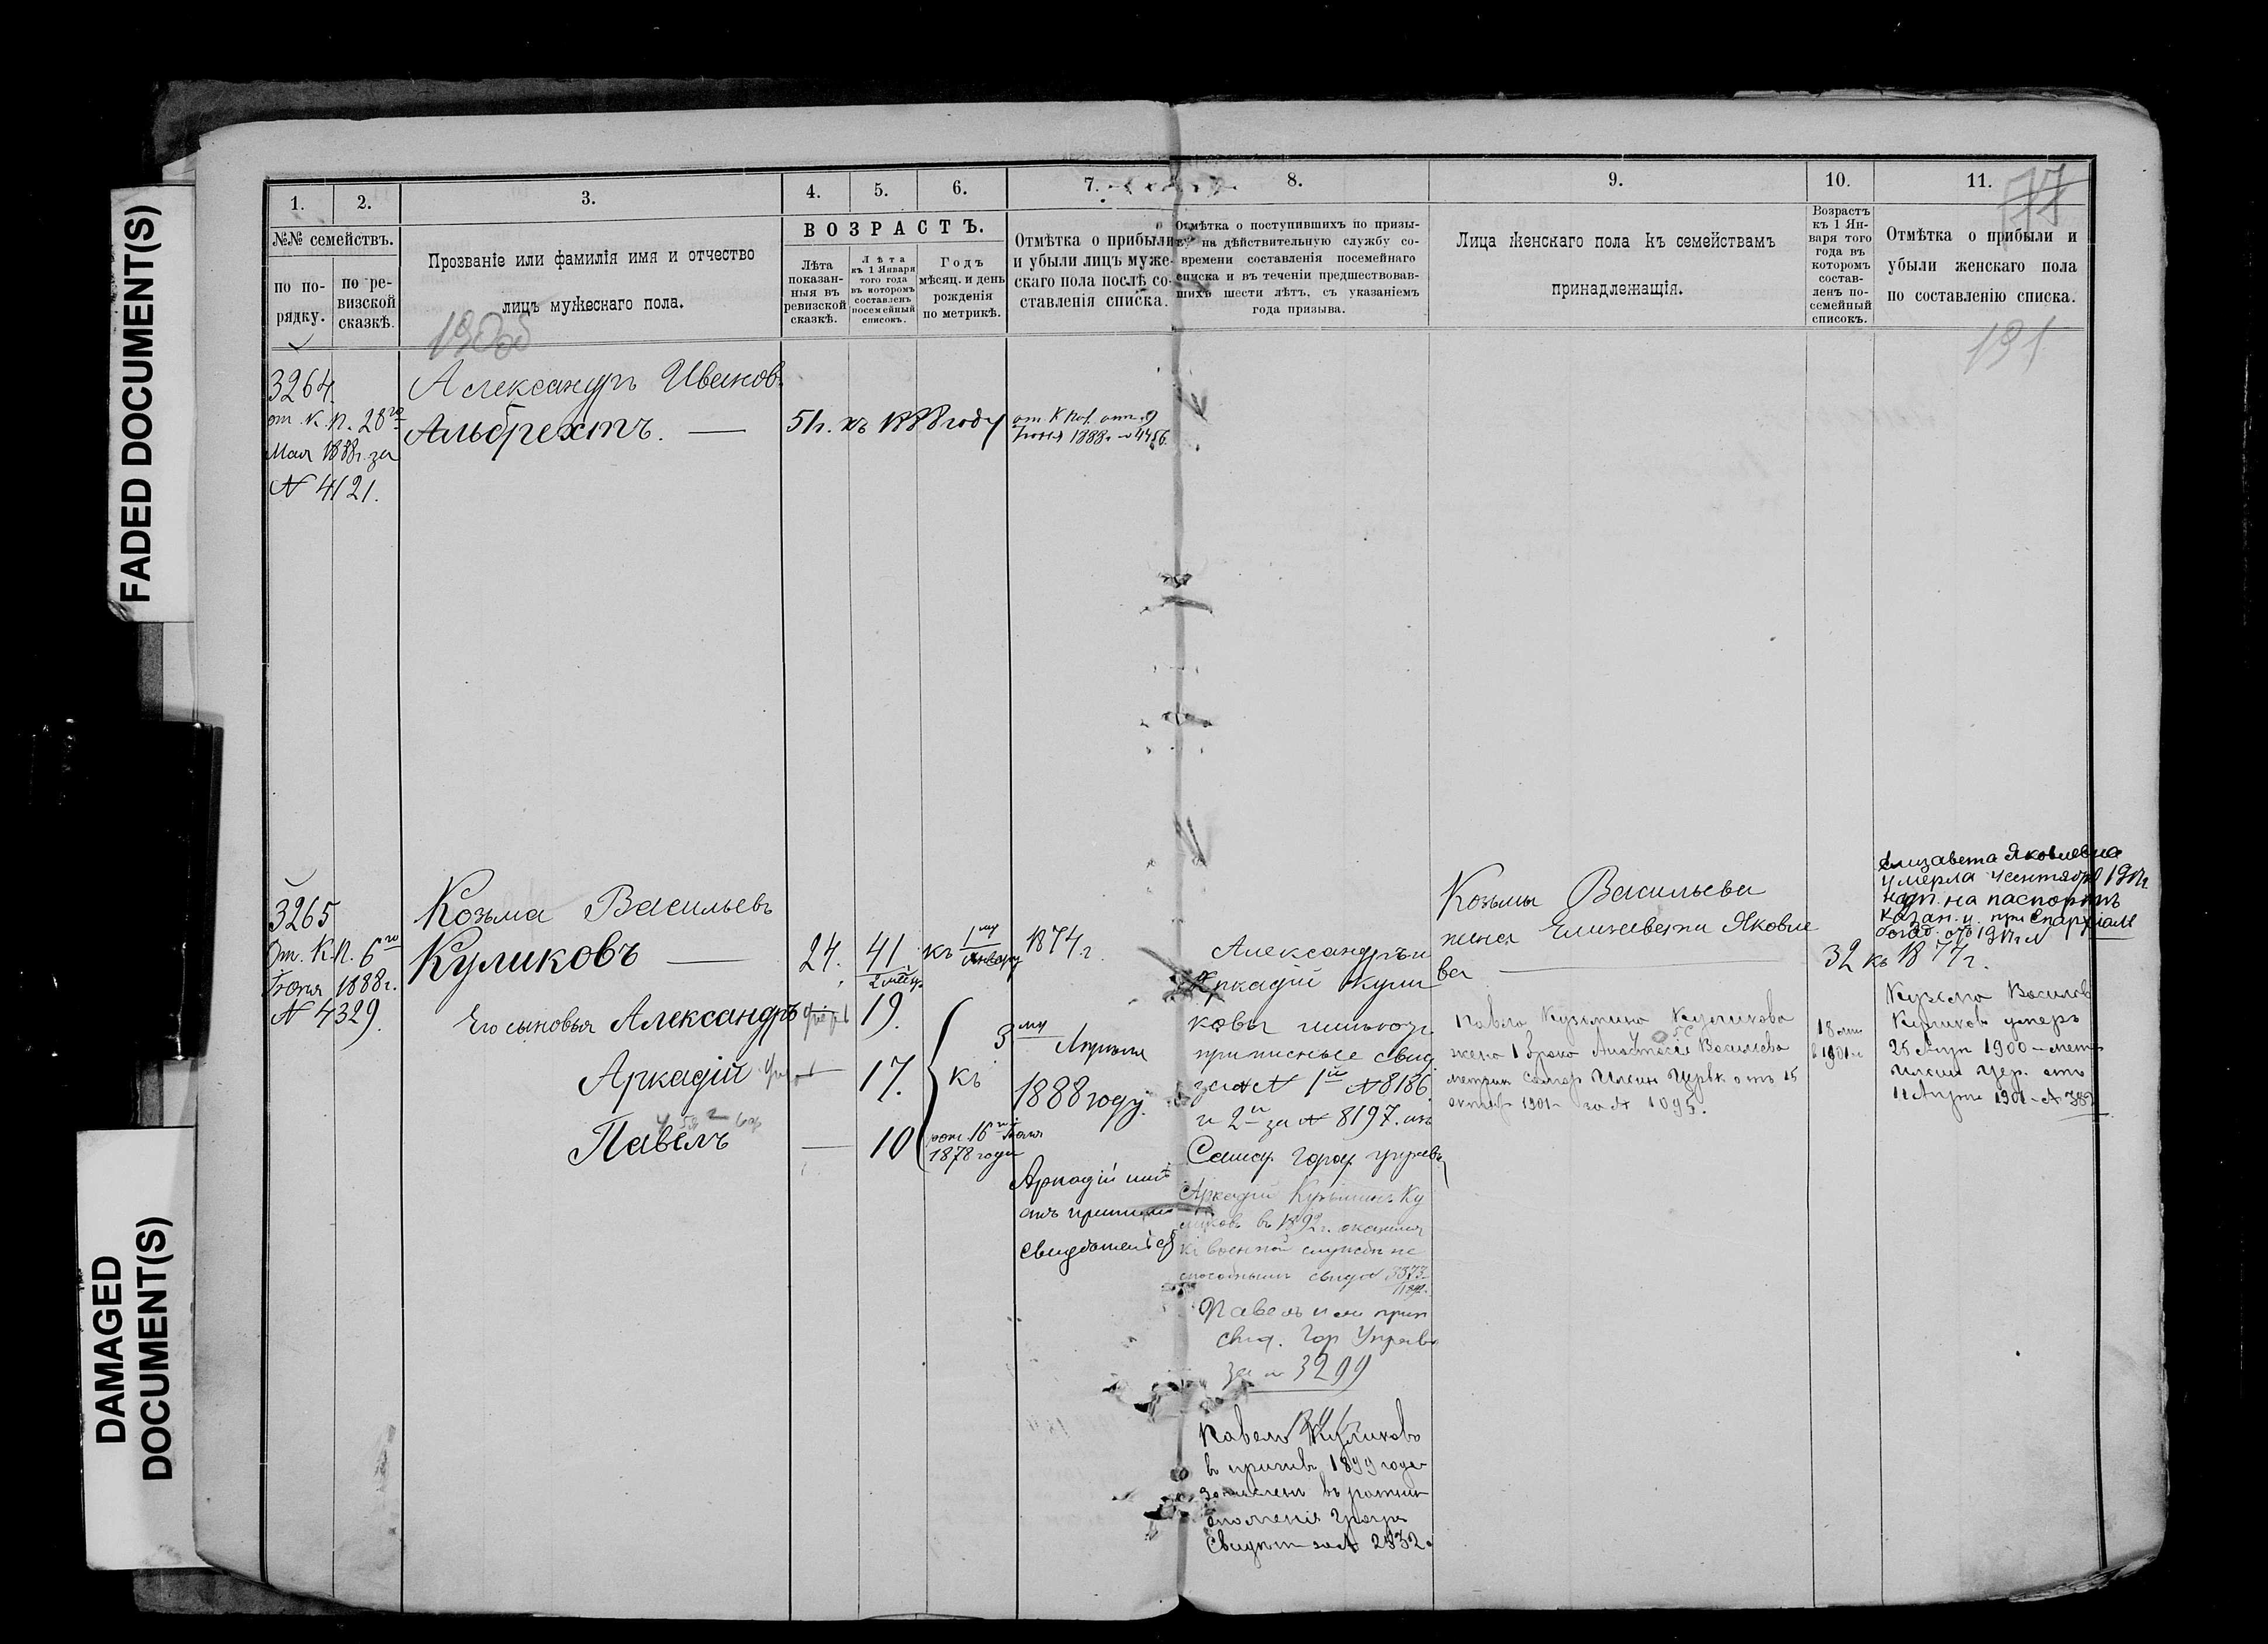 FADED DOCUMENT(S)
DAMAGED
DOCUMENT(S)
1.
2.
3.
4.
5.
6.
7.
8.
9.
10.
11.
77
№№ семействъ.
по по-
рядку.
по ре-
визской
сказкѣ.
Прозваніе или фамилія имя и отчество
лицъ мужескаго пола.
ВОЗРАСТЪ.
Лѣта
показан-
ныя въ
ревизской
сказкѣ.
Лѣта
къ 1 Января
того года
въ которомъ
составленъ
посемейный
списокъ.
Годъ
мѣсяц. и день
рожденія
по метрикѣ.
Отмѣтка о прибыли
и убыли лицъ муже-
скаго пола послѣ со-
ставленія списка.
Отмѣтка о поступившихъ по призы-
ву на дѣйствительную службу со-
времени составленія посемейнаго
списка и въ теченіи предшествовав-
шихъ шести лѣтъ, съ указаніемъ
года призыва.
Лица женскаго пола къ семействамъ
принадлежащія.
Возрастъ
къ 1 Ян-
варя того
года въ
которомъ
состав-
ленъ по-
семейный
списокъ.
Отмѣтка о прибыли и
убыли женскаго пола
по составленію списка.
191
3264
от. К.П. 28го
Мая 1888г. за
N 4121.
Александръ Ивановъ
Альбрехтъ. —
51г. къ 1888 году
1888г. 4456.
3265
От. К.П. 6го
Іюня 1888г.
N 4329.
Козьма Васильевъ
Куликовъ —
24.
41.
къ 1му Январу
1874 г.
Его сыновья Александръ
19.
Аркадій
17.
Павелъ
10
3му Апрѣля
къ
1888 году
рож. 16го Іюня
1878 года
Аркадій
Александръ и
Аркадій Кули
ковы
приписные свид
за N 1й N 8186
и 2й за N 8197.
Самар. Город. управы
Аркадій Кузьминъ Ку
ликовъ въ 1892г. оказался
къ военной службѣ не
способнымъ свид N 3373
Павелъ прип
свид. Гор Управ
за N 3299
Павелъ Куликовъ
въ призывъ 1899 года
зачисленъ въ ратник
ополченія
Свидѣт за N 2532.
Козьмы Васильева
жена Елизавета Яковле
ва
32 къ 1877г.
Павла Кузьмина Куликова
жена 1 брака Анастасія Васильева
метрик Самар Ильин Церкв отъ 15
октяб 1901 за N 1095.
18 лѣт
в 1901 г
Елизавета Яковлевна
умерла 4 сентября
на паспортѣ
Кузьма Васильев
Куликов умеръ
25 Апр 1900
Ильин Цер. отъ
11 Апрѣ 1901 N 382